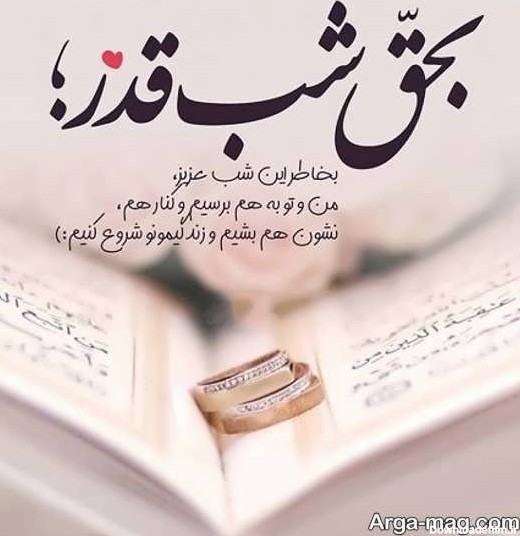 بحقّ شب قدر؛
بخاطر این شب عزیز،
من و تو به هم برسیم و کنار هم،
نشون هم بشیم و زندگیمونو شروع کنیم:)
عقبة الذین من
Arga-mag.com